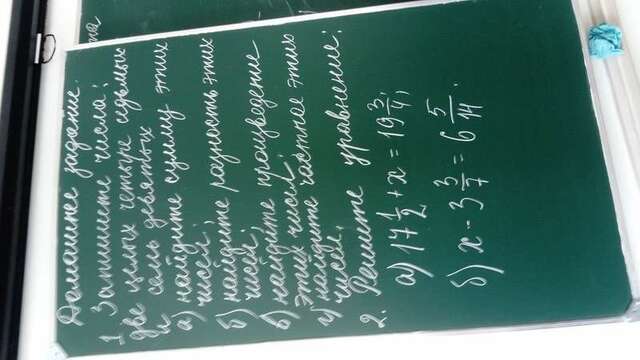 Домашнее задание.
1. Запишите числа:
две целых четыре седьмых
и семь девятых
а) найдите сумму этих
чисел;
б) найдите разность этих
чисел;
в) найдите произведение
этих чисел;
г) найдите частное этих
чисел.
2. Решите уравнение:
а) 17 1/2 + x = 19 3/4;
б) x - 3 3/7 = 6 5/14.